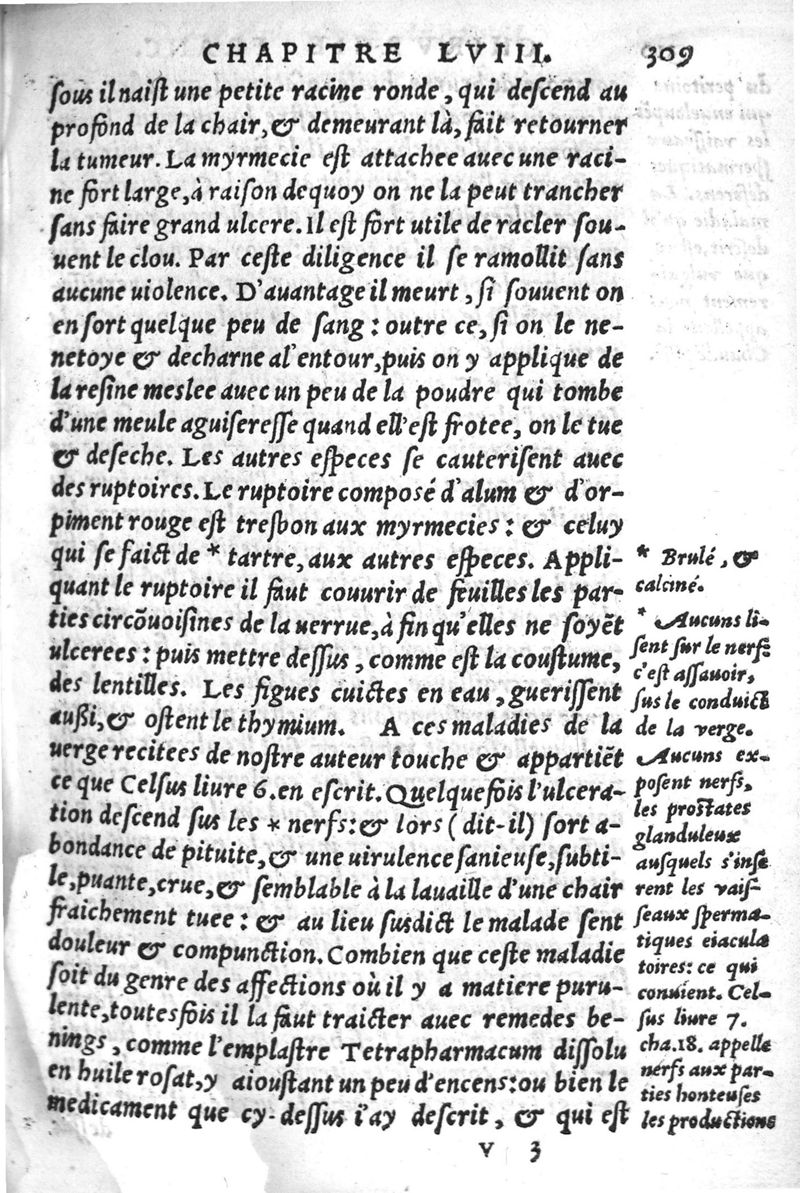 CHAPITRE LVIII. 309
ſous il naiſt une petite racine ronde, qui deſcend au
profond de la chair, & demeurant là, fait retourner
la tumeur. La myrmecie eſt attachee auec une raci-
ne fort large, à raiſon dequoy on ne la peut trancher
ſans faire grand ulcere. Il eſt fort utile de racler ſou-
uent le clou. Par ceſte diligence il ſe ramollit ſans
aucune uiolence. D'auantage il meurt, ſi ſouuent on
en ſort quelque peu de ſang: outre ce, ſi on le ne-
netoye & decharne al'entour, puis on y applique de
la reſine meslee auec un peu de la poudre qui tombe
d'une meule aguiſereſſe quand ell'eſt frotee, on le tue
& deſeche. Les autres eſpeces ſe cauteriſent auec
des ruptoires. Le ruptoire compoſé d'alum & d'or-
piment rouge eſt treſbon aux myrmecies: & celuy
qui ſe faict de * tartre, aux autres eſpeces. Appli-
quant le ruptoire il faut couurir de feuilles les par-
ties circõuoiſines de la uerrue, à fin qu'elles ne ſoyẽt
ulcerees: puis mettre deſſus, comme eſt la couſtume,
des lentilles. Les figues cuictes en eau, gueriſſent
außi, & oſtent le thymium. A ces maladies de la
uerge recitees de noſtre auteur touche & appartiẽt
ce que Celſus liure 6. en eſcrit. Quelquefois l'ulcera-
tion deſcend ſus les * nerfs: & lors (dit-il) ſort a-
bondance de pituite, & une uirulence ſanieuſe, ſubti-
le, puante, crue, & ſemblable à la lauaille d'une chair
fraichement tuee: & au lieu ſusdict le malade ſent
douleur & compunction. Combien que ceſte maladie
ſoit du genre des affections où il y a matiere puru-
lente, toutesfois il la faut traicter auec remedes be-
nings, comme l'emplaſtre Tetrapharmacum diſſolu
en huile roſat, y aiouſtant un peu d'encens: ou bien le
medicament que cy-deſſus i'ay deſcrit, & qui eſt
* Brulé, &
calciné.
* Aucuns li-
ſent ſur le nerf:
c'eſt aſſauoir,
ſus le conduict
de la verge.
Aucuns ex-
poſent nerfs,
les proſtates
glanduleux
auſquels s'inſe
rent les vaiſ-
ſeaux ſperma-
tiques eiacula
toires: ce qui
conuient. Cel-
ſus liure 7.
cha. 18. appelle
nerfs aux par-
ties honteuſes
les productions
V 3